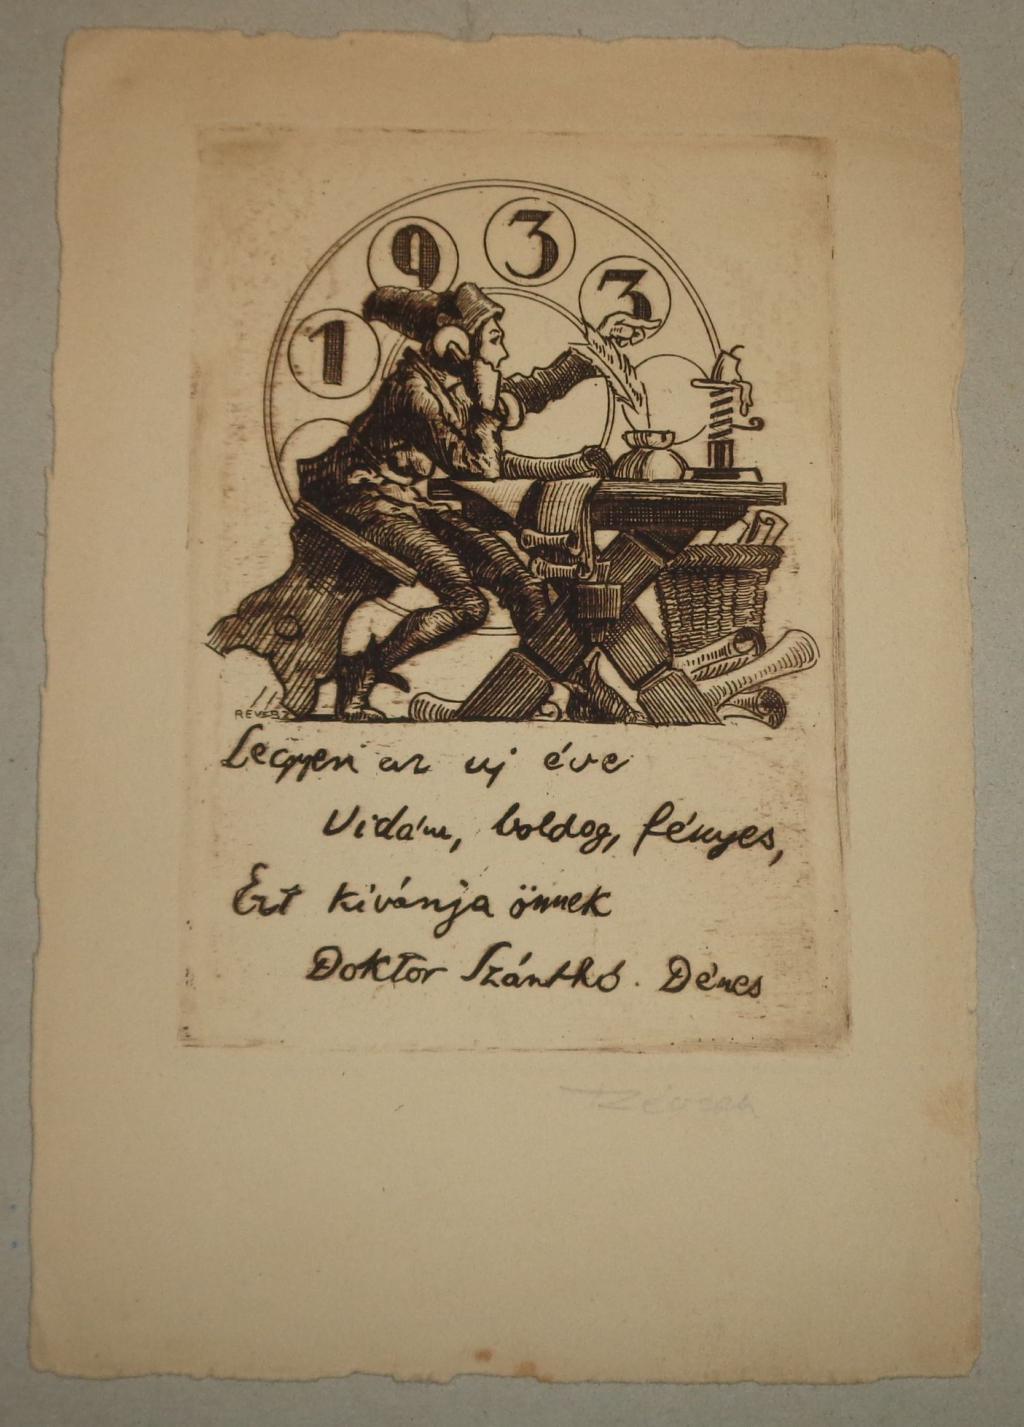 1 9 3 3
REVESZ
Legyen az uj éve
Vidám, boldog, fényes,
Ezt kivánja önnek
Doktor Szánthó. Dénes